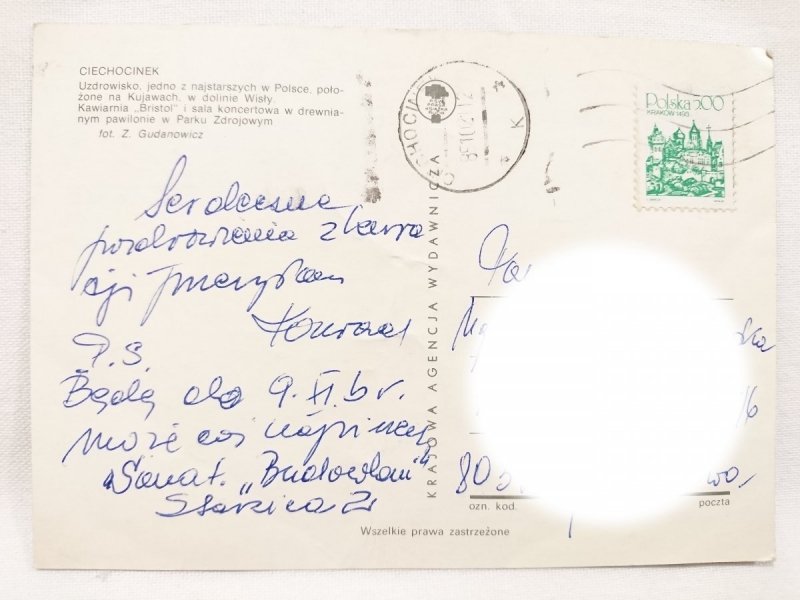 CIECHOCINEK
Uzdrowisko, jedno z najstarszych w Polsce, poło-
żone na Kujawach, w dolinie Wisły.
Kawiarnia „Bristol" i sala koncertowa w drewnia-
nym pawilonie w Parku Zdrojowym
fot. Z. Gudanowicz
Polska 5.00
KRAKÓW 1493
Serdeczne
pozdrowienia z kura
cji przesyłam
Konrad
P.S.
Będę do 9.XI.br.
może coś napiszesz
Sanat. „Budowlani"
KRAJOWA AGENCJA WYDAWNICZA
80
ozn. kod.
poczta
Wszelkie prawa zastrzeżone